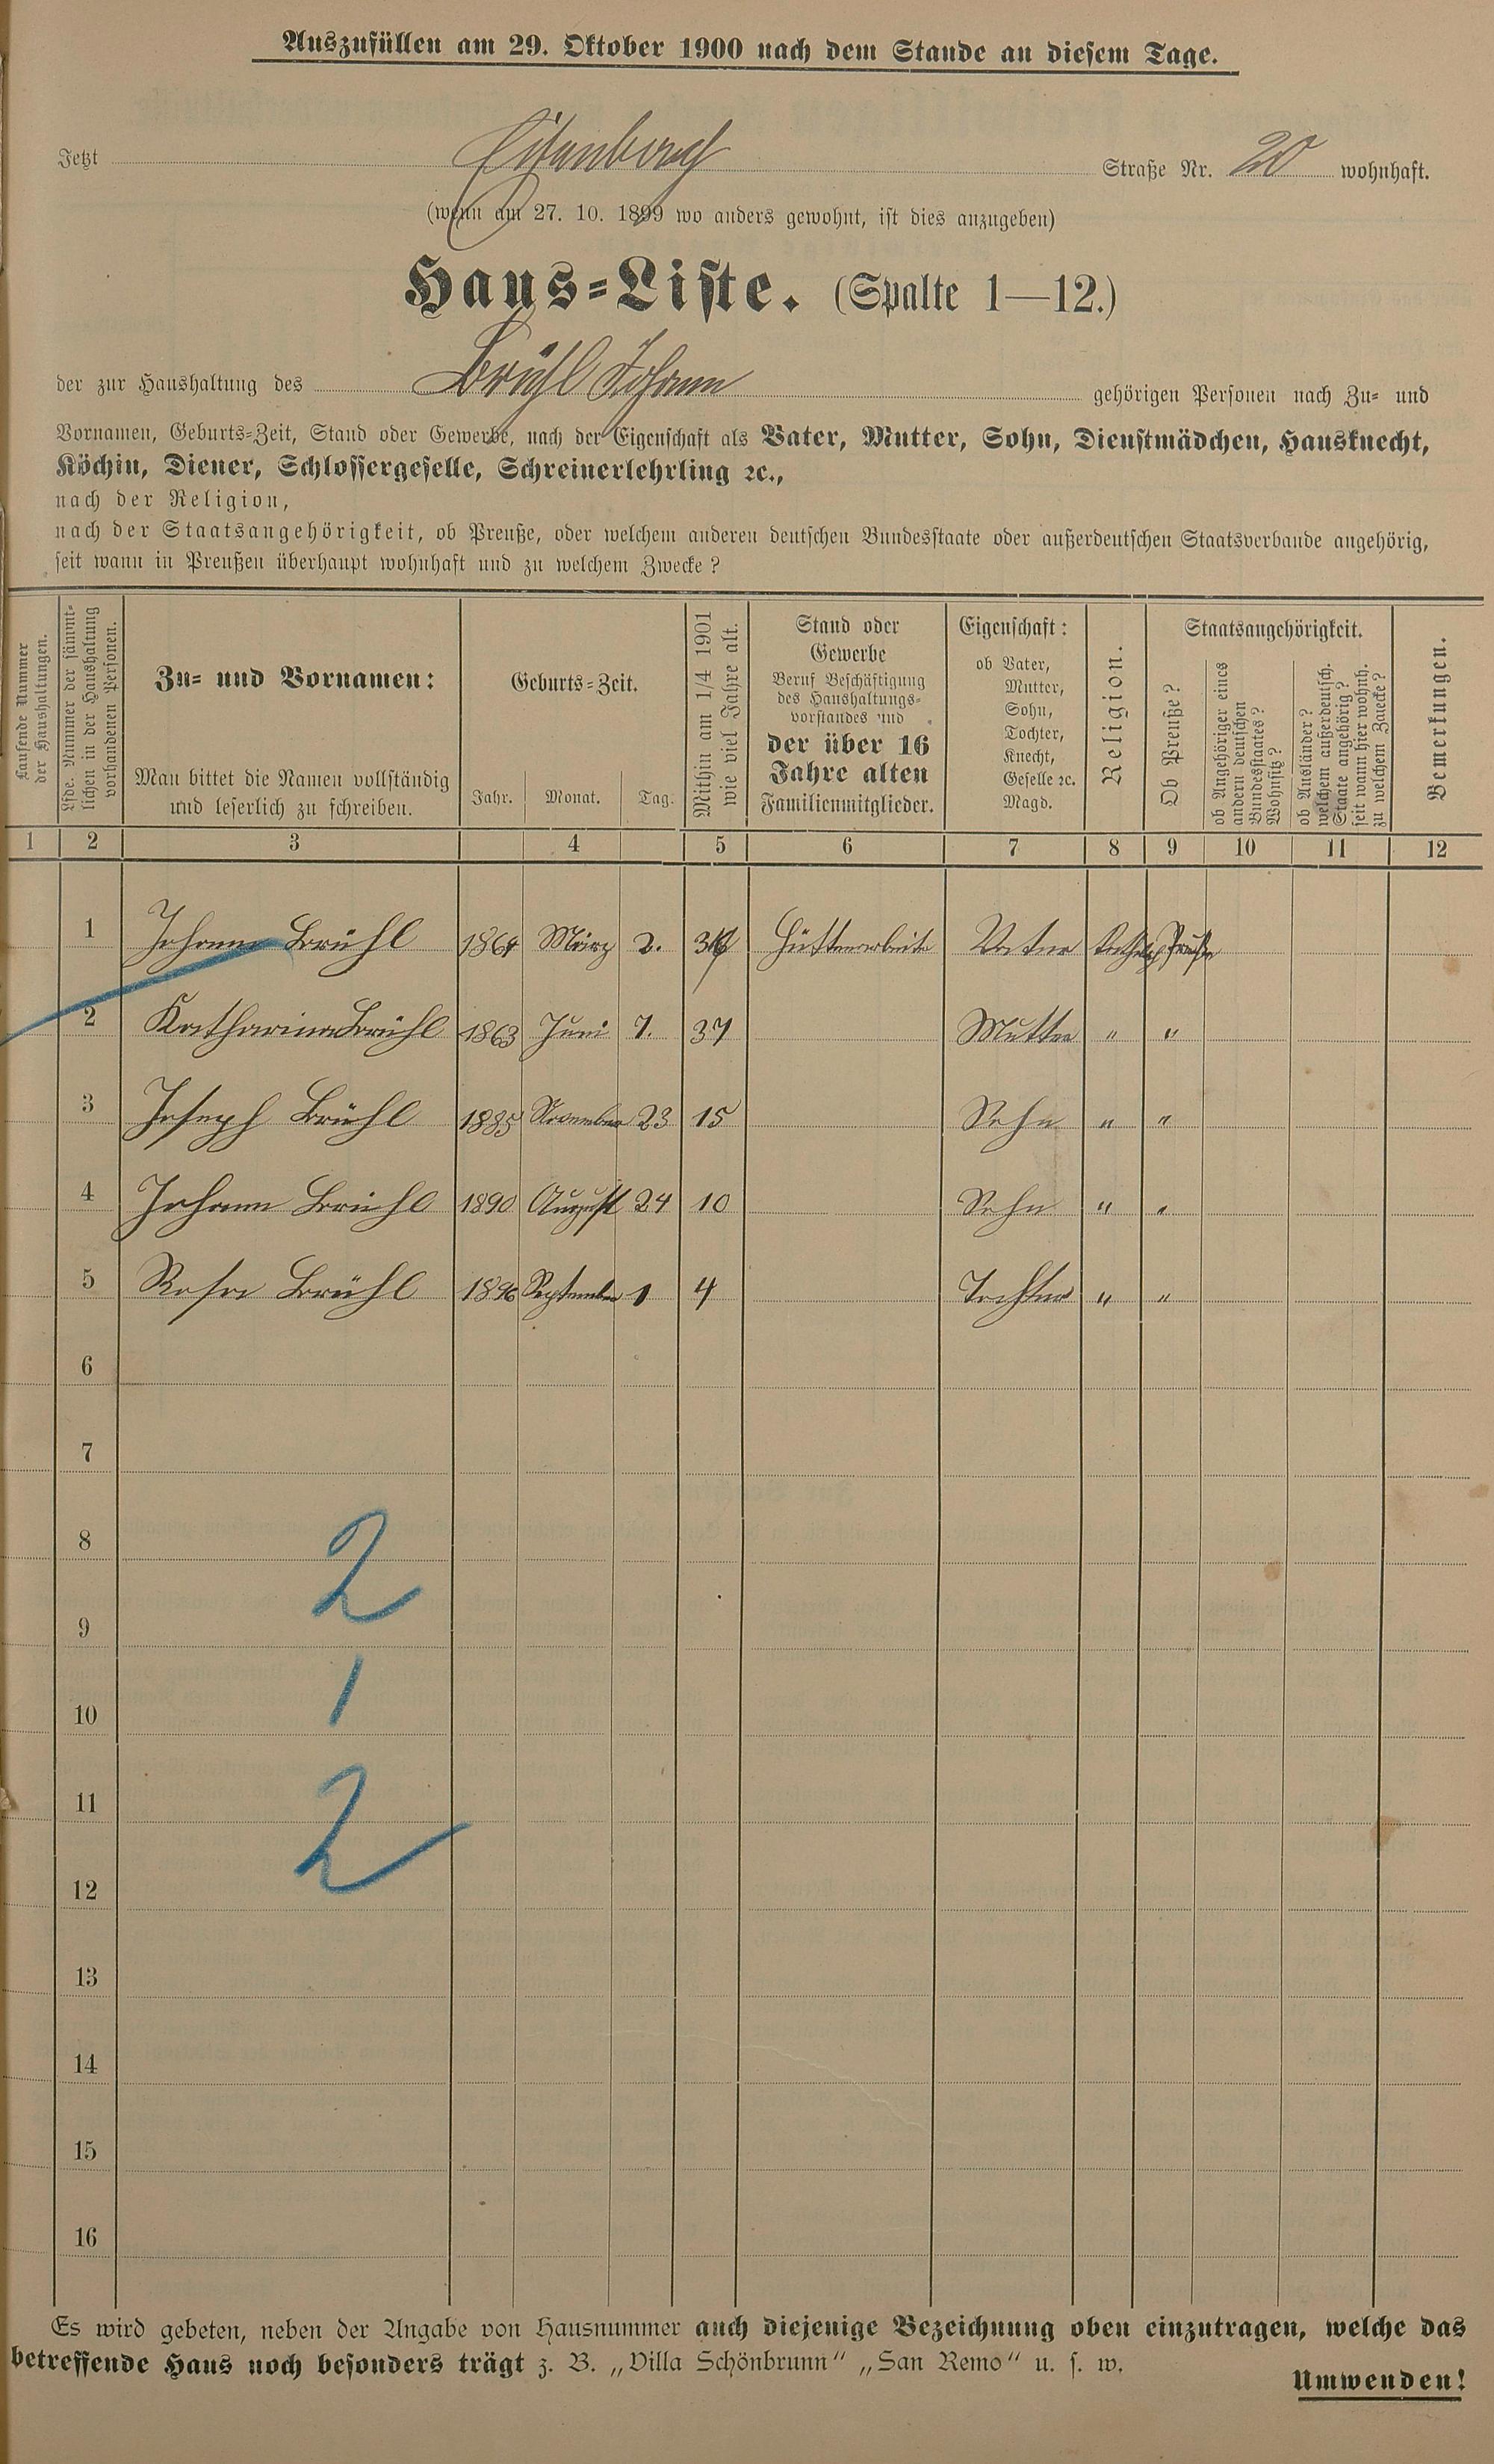 Auszufüllen am 29. Oktober 1900 nach dem Stande an diesem Tage.
Jetzt Straße Nr. 20 wohnhaft.
(wenn am 27. 10. 1899 wo anders gewohnt, ist dies anzugeben)
Haus-Liste. (Spalte 1—12.)
der zur Haushaltung des Brühl Johann gehörigen Personen nach Zu- und
Vornamen, Geburts-Zeit, Stand oder Gewerbe, nach der Eigenschaft als Vater, Mutter, Sohn, Dienstmädchen, Hausknecht,
Köchin, Diener, Schlossergeselle, Schreinerlehrling ꝛc.,
nach der Religion,
nach der Staatsangehörigkeit, ob Preuße, oder welchem anderen deutschen Bundesstaate oder außerdeutschen Staatsverbande angehörig,
seit wann in Preußen überhaupt wohnhaft und zu welchem Zwecke?
Laufende Nummer
der Haushaltungen.
Lfde. Nummer der sämmt-
lichen in der Haushaltung
vorhandenen Personen.
Zu- und Vornamen:
Man bittet die Namen vollständig
und leserlich zu schreiben.
Geburts-Zeit.
Jahr. Monat. Tag.
Mithin am 1/4 1901
wie viel Jahre alt.
Stand oder
Gewerbe
Beruf Beschäftigung
des Haushaltungs-
vorstandes und
der über 16
Jahre alten
Familienmitglieder.
Eigenschaft:
ob Vater,
Mutter,
Sohn,
Tochter,
Knecht,
Geselle ꝛc.
Magd.
Religion.
Staatsangehörigkeit.
Ob Preuße?
ob Angehöriger eines
andern deutschen
Bundesstaates?
Wohnsitz?
ob Ausländer?
welchem außerdeutsch.
Staate angehörig?
seit wann hier wohnh.
zu welchem Zwecke?
Bemerkungen.
1 2 3 4 5 6 7 8 9 10 11 12
1 Johann Brühl 1864 März 2. Hüttenarbeiter Vater Preuße
2 Katharina Brühl 1863 Juni 7. 37 Mutter " "
3 Joseph Brühl 1885 November 23 15 Sohn " "
4 Johann Brühl 1890 August 24 10 Sohn " "
5 Rosa Brühl 1896 September 1 4 Tochter " "
6
7
8
2
9
10
1
11
2
12
13
14
15
16
Es wird gebeten, neben der Angabe von Hausnummer auch diejenige Bezeichnung oben einzutragen, welche das
betreffende Haus noch besonders trägt z. B. „Villa Schönbrunn“ „San Remo“ u. s. w.
Umwenden!